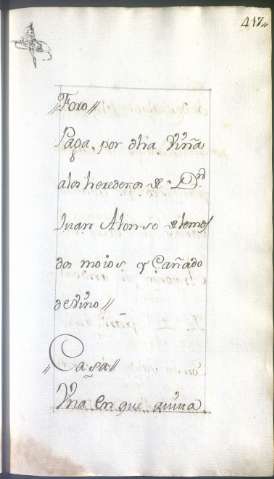 417
Foro//
Paga, por dha, Viña
alos herederos de Dn
Juan Alonso de lemos
dos moios y Cañado
de vino//
//Casa//
Vna en que auita